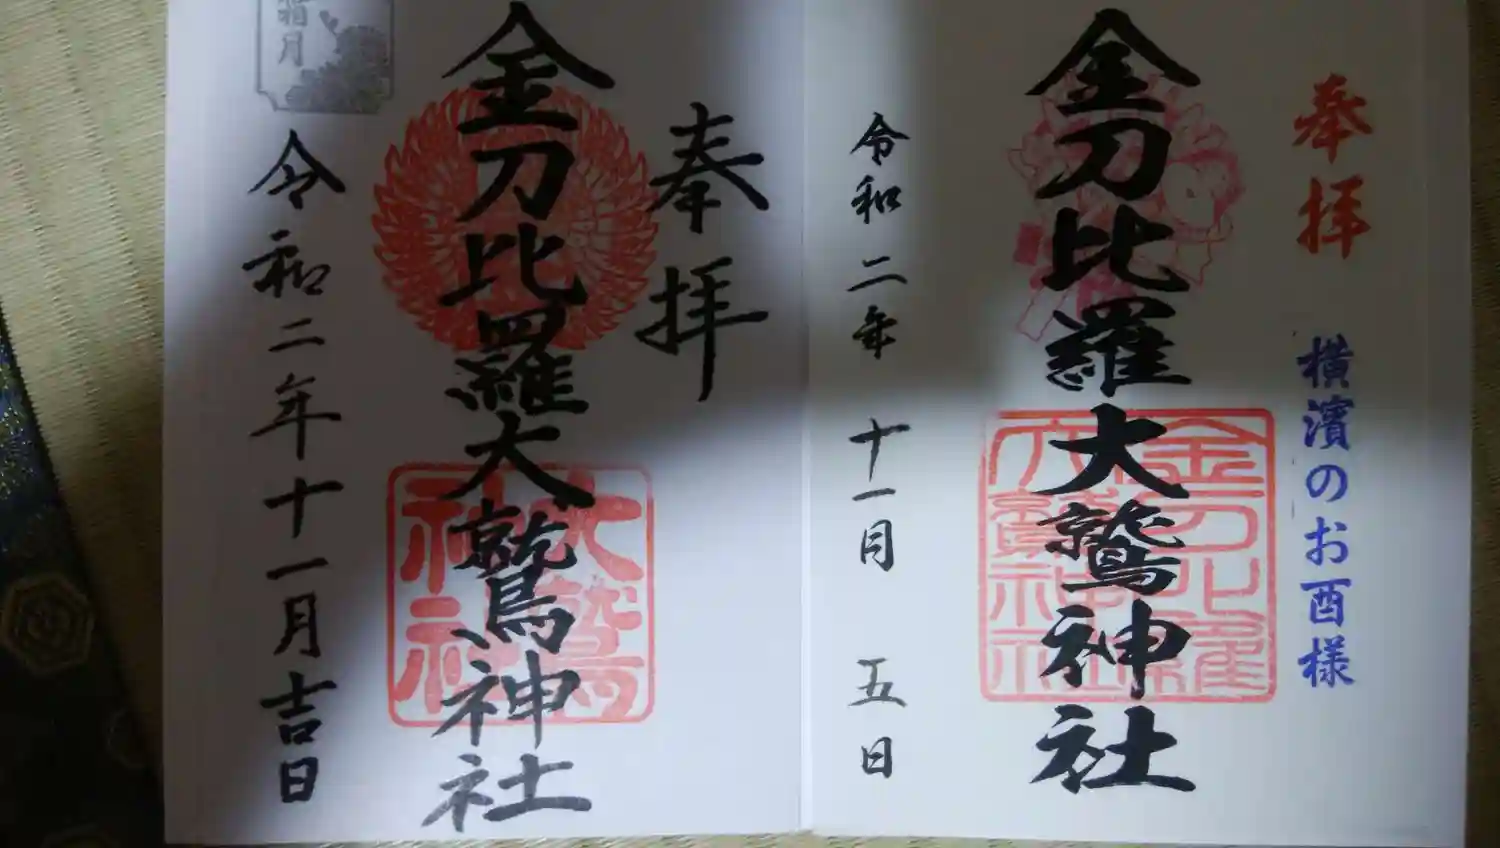 奉拝
横濱のお酉様
金刀比羅大鷲神社
令和二年 十一月 五日
奉拝
金刀比羅大鷲神社
大鷲神社
令和二年十一月吉日
霜月